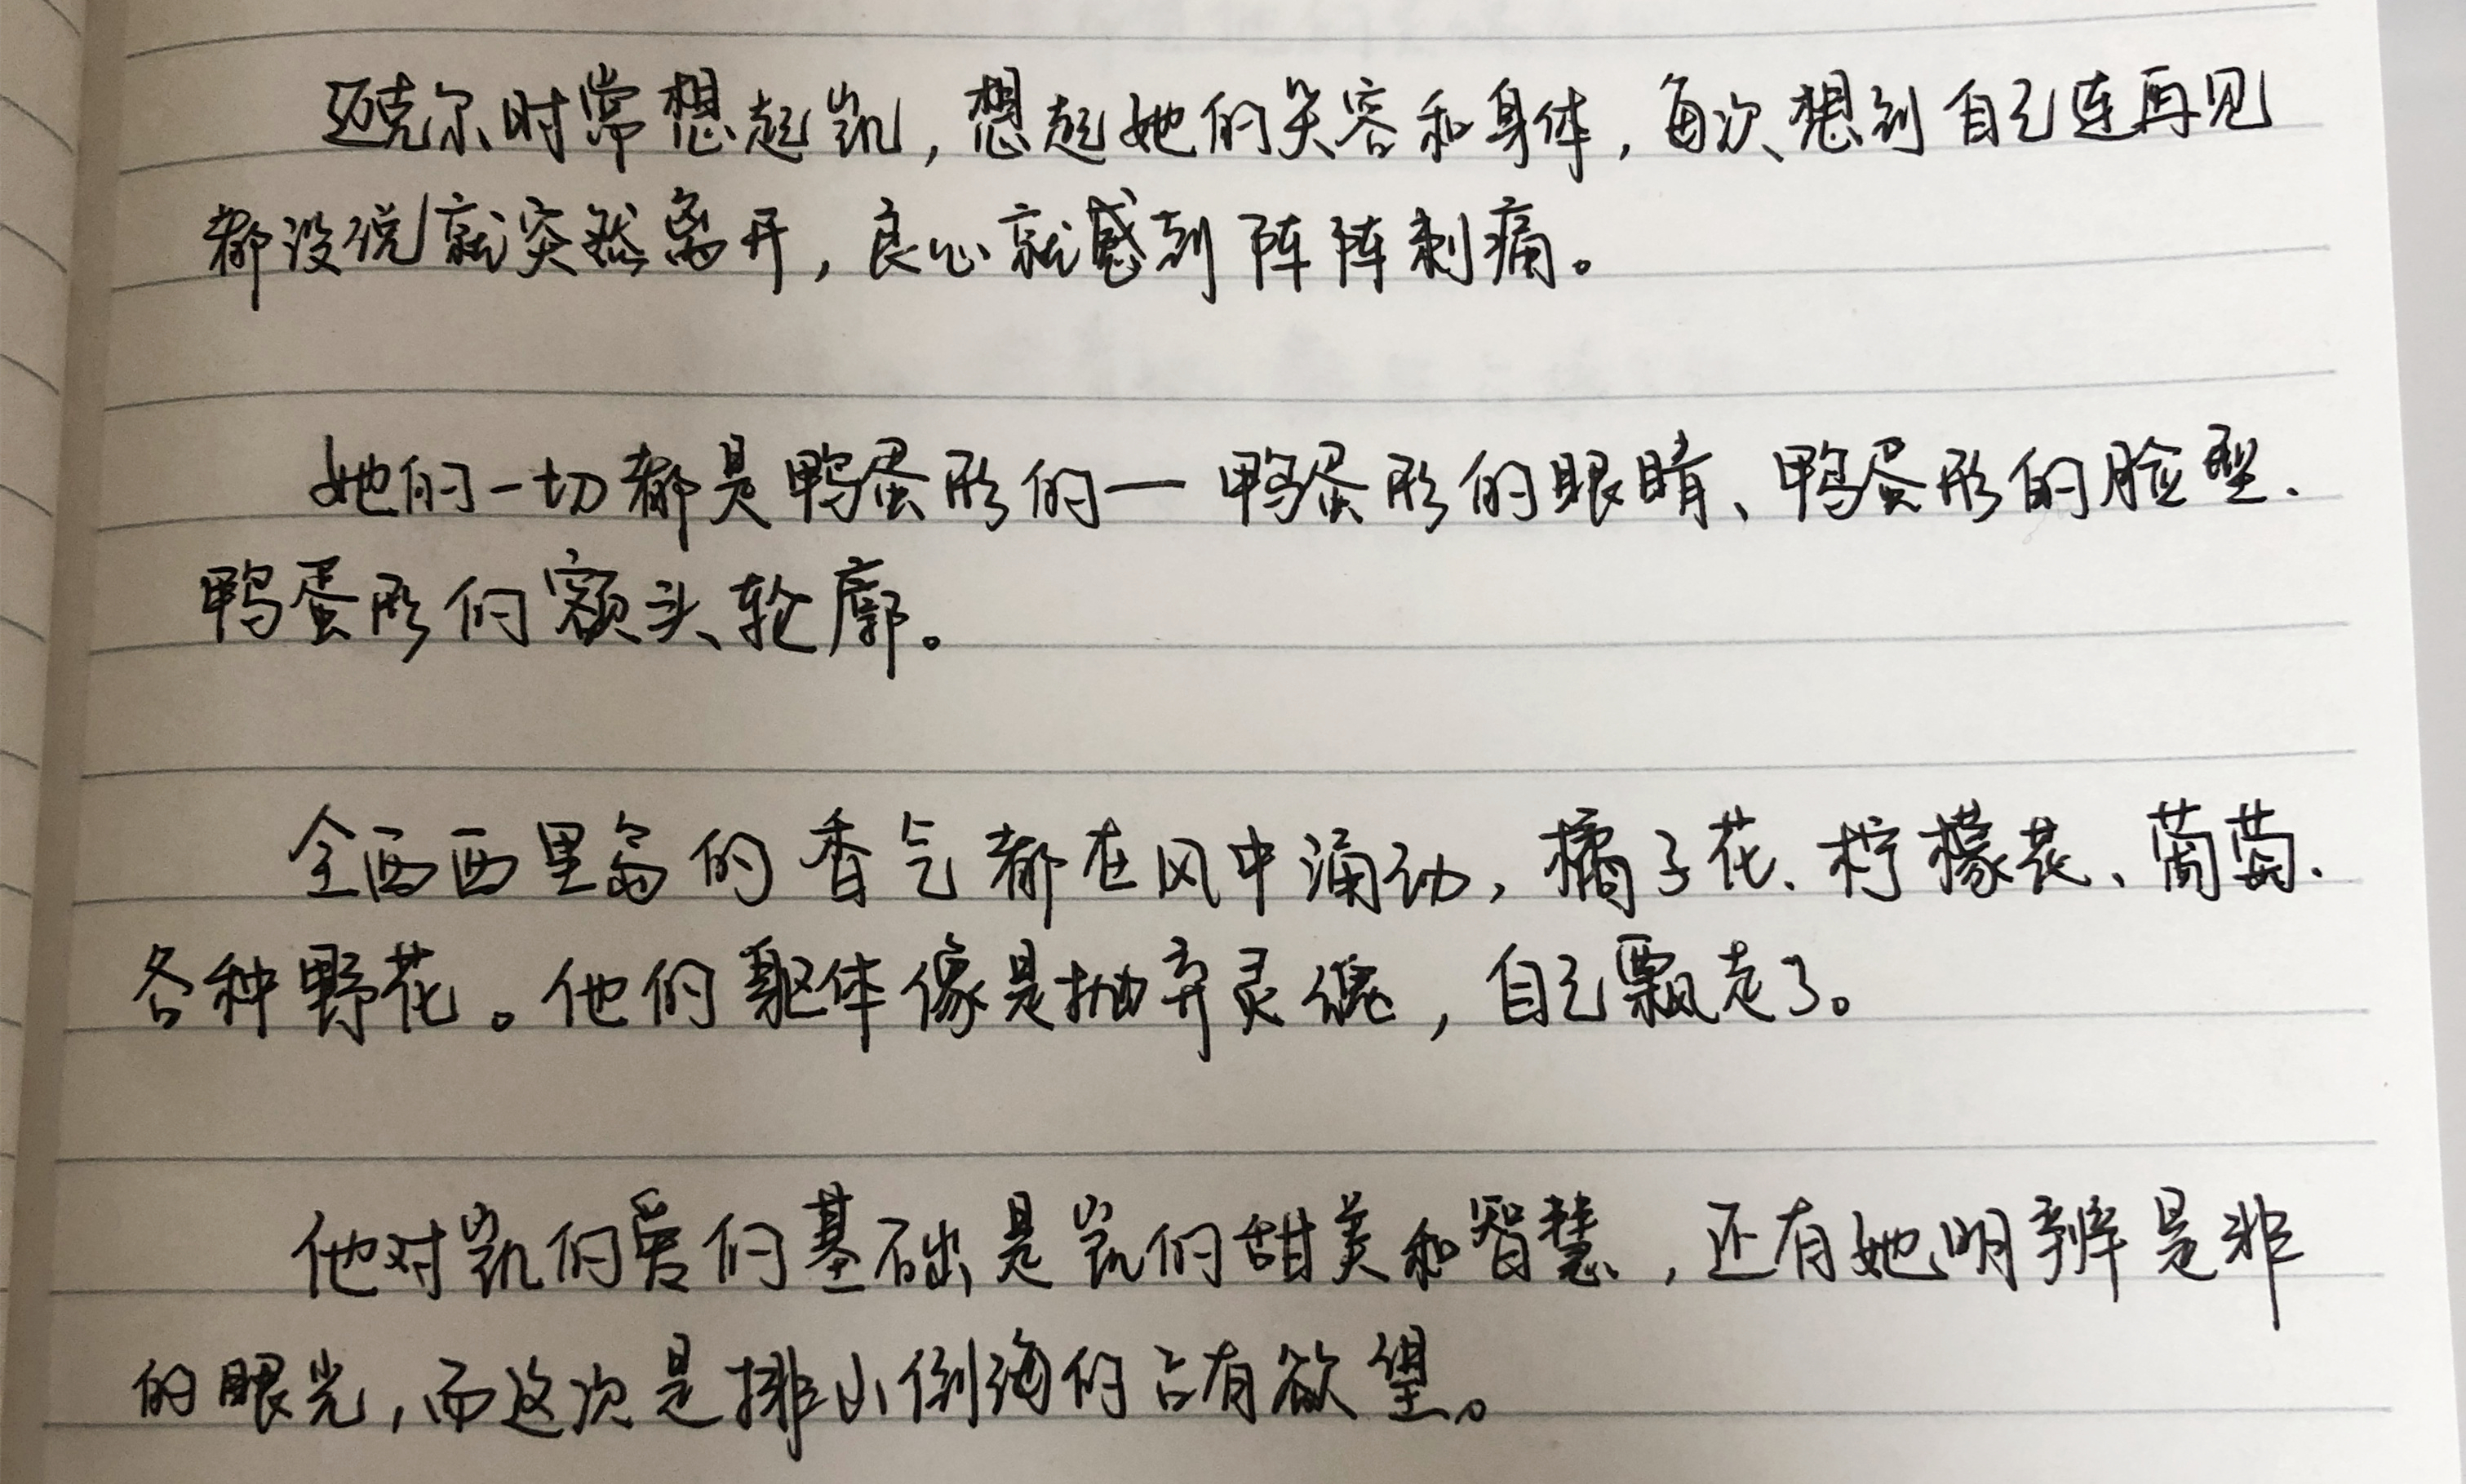 迈克尔时常想起凯，想起她的笑容和身体，每次想到自己连再见
都没说就突然离开，良心就感到阵阵刺痛。
她的一切都是鸭蛋形的一鸭蛋形的眼睛、鸭蛋形的脸型、
鸭蛋形的额头轮廓。
全西西里岛的香气都在风中涌动，橘子花、柠檬花、葡萄、
各种野花。他的躯体像是抛弃灵魂，自己飘走了。
他对凯的爱的基础是凯的甜美和智慧，还有她明辨是非
的眼光，而这次是排山倒海的占有欲望。